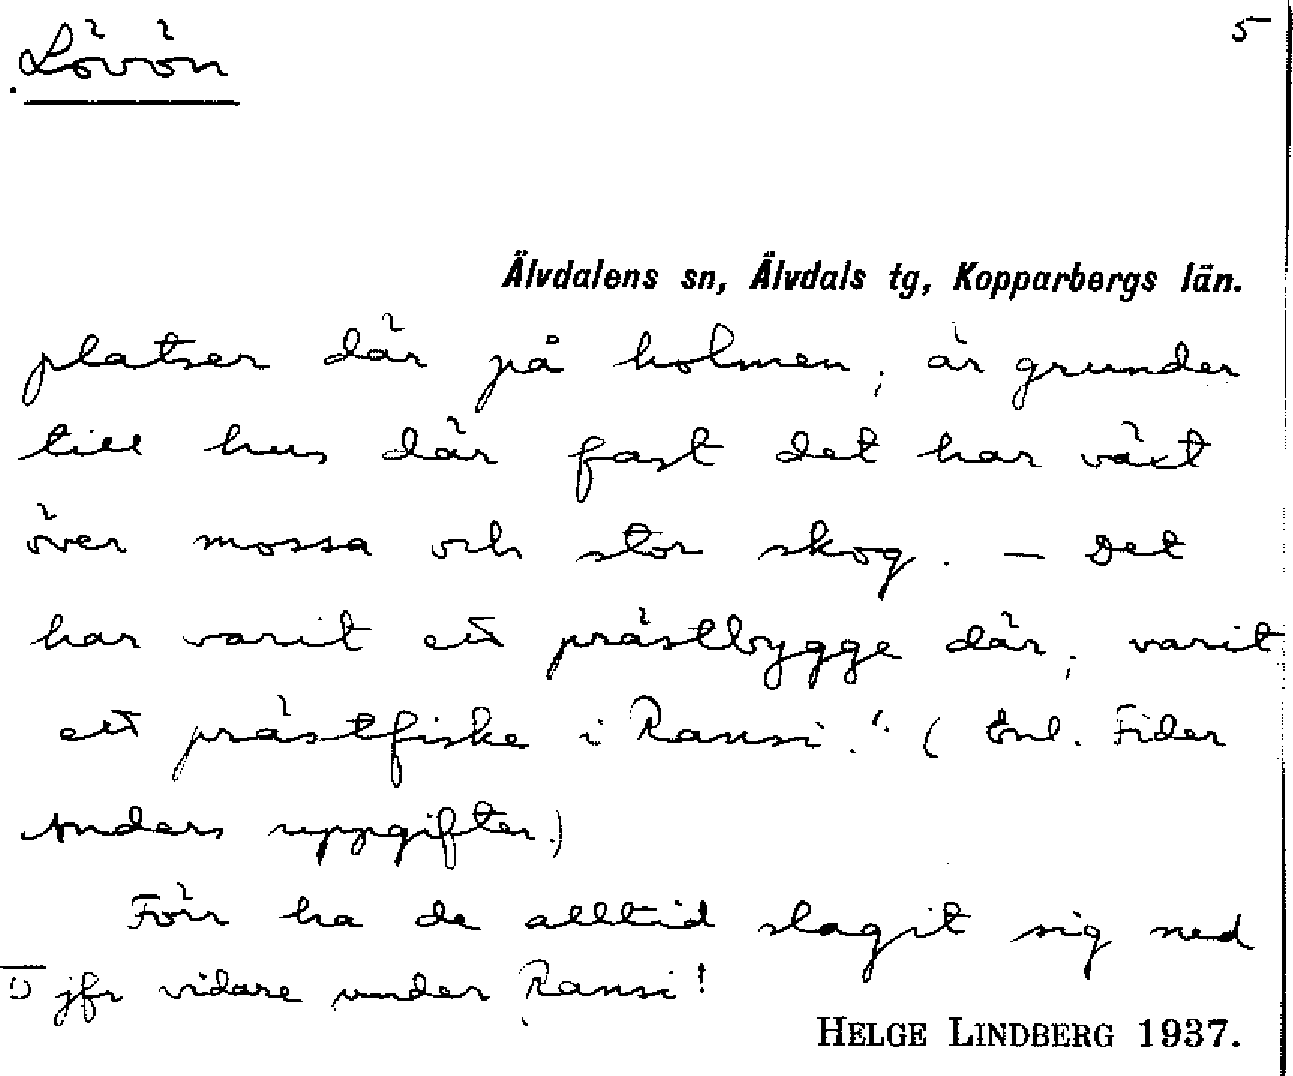 Lövön
5
Älvdalens sn, Älvdals tg, Kopparbergs län.
platser där på holmen, är grunder
till hus där fast det har växt
över mossa och stor skog. — Det
har varit ett prästbygge där, varit
ett prästfiske i Ransi." ( Enl. Fider
Anders uppgifter.)
Förr ha de alltid slagit sig ned
1) jfr vidare under Ransi!
HELGE LINDBERG 1937.